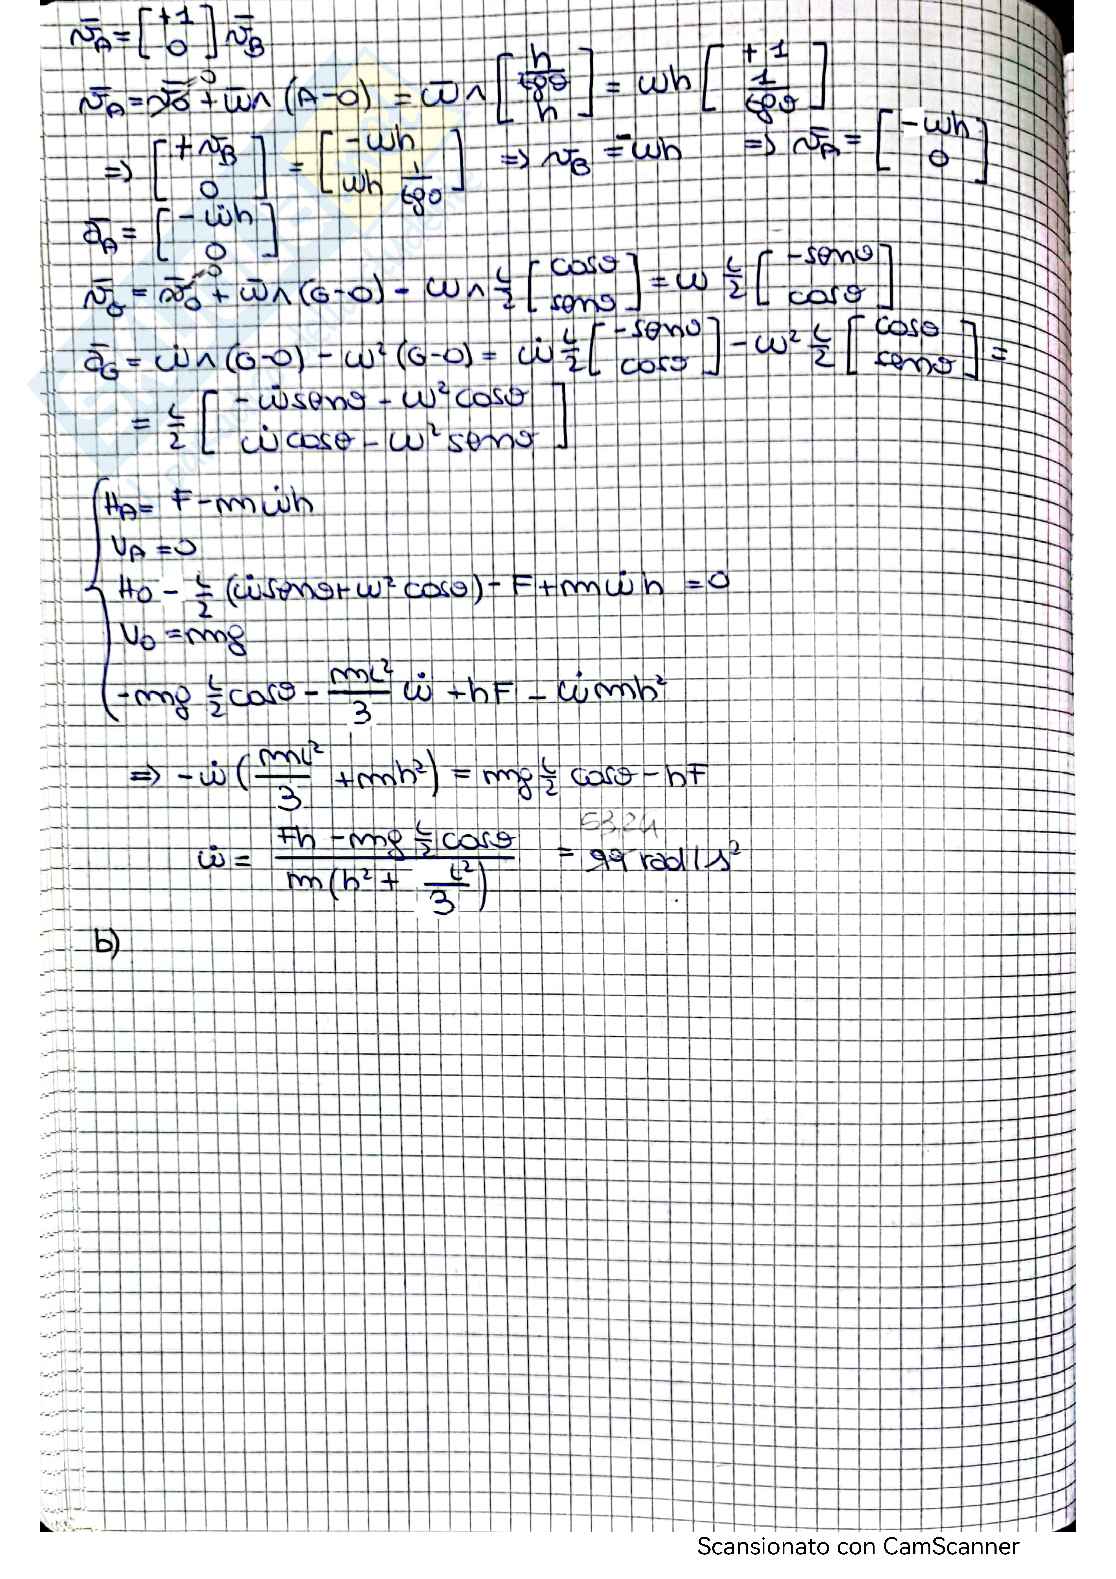 v̄A = [+1 0] v̄B
v̄A = v̄0 + ω̄∧(A-O) = ω̄∧[h/tgθ h] = ωh[+1 1/tgθ]
⇒ [+vB 0] = [-ωh ωh 1/tgθ] ⇒ vB = -ωh ⇒ v̄A = [-ωh 0]
āA = [-ω̇h 0]
v̄G = v̄0 + ω̄∧(G-O) - ω∧L/2[cosθ senθ] = ω L/2[-senθ cosθ]
āG = ω̇∧(G-O) - ω²(G-O) = ω̇ L/2[-senθ cosθ] - ω² L/2[cosθ senθ] =
= L/2[-ω̇senθ - ω²cosθ ω̇cosθ - ω²senθ]
HA = F - mω̇h
VA = 0
HO - L/2(ω̇senθ + ω²cosθ) - F + mω̇h = 0
VO = mg
-mg L/2 cosθ - mL²/3 ω̇ + hF - ω̇mh²
⇒ -ω̇(mL²/3 + mh²) = mg L/2 cosθ - hF
ω̇ = Fh - mg L/2 cosθ / m(h² + L²/3) = 99 rad/s²
b)
Scansionato con CamScanner